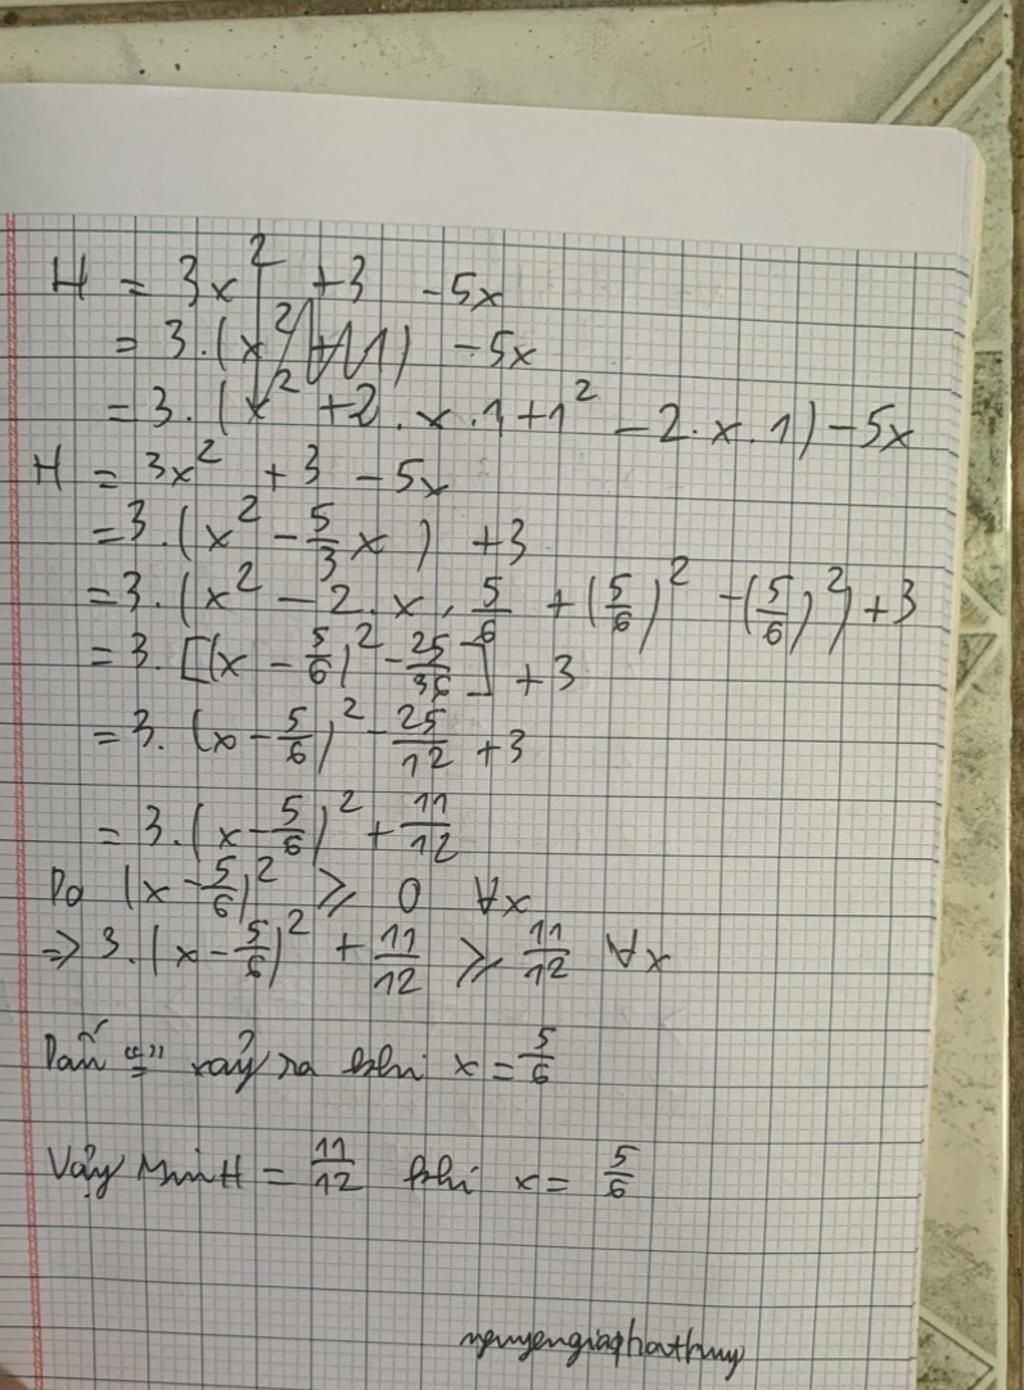 H = 3x² + 3 - 5x
= 3.(x² + 1) - 5x
= 3.(x² + 2.x.1 + 1² - 2.x.1) - 5x
H = 3x² + 3 - 5x
= 3.(x² - 5/3 x) + 3
= 3.(x² - 2.x.5/6 + (5/6)² - (5/6)²) + 3
= 3.[(x - 5/6)² - 25/36] + 3
= 3.(x - 5/6)² - 25/12 + 3
= 3.(x - 5/6)² + 11/12
Do (x - 5/6)² ⩾ 0 ∀x
⇒ 3.(x - 5/6)² + 11/12 ⩾ 11/12 ∀x
Dấu "=" xảy ra khi x = 5/6
Vậy Min H = 11/12 khi x = 5/6